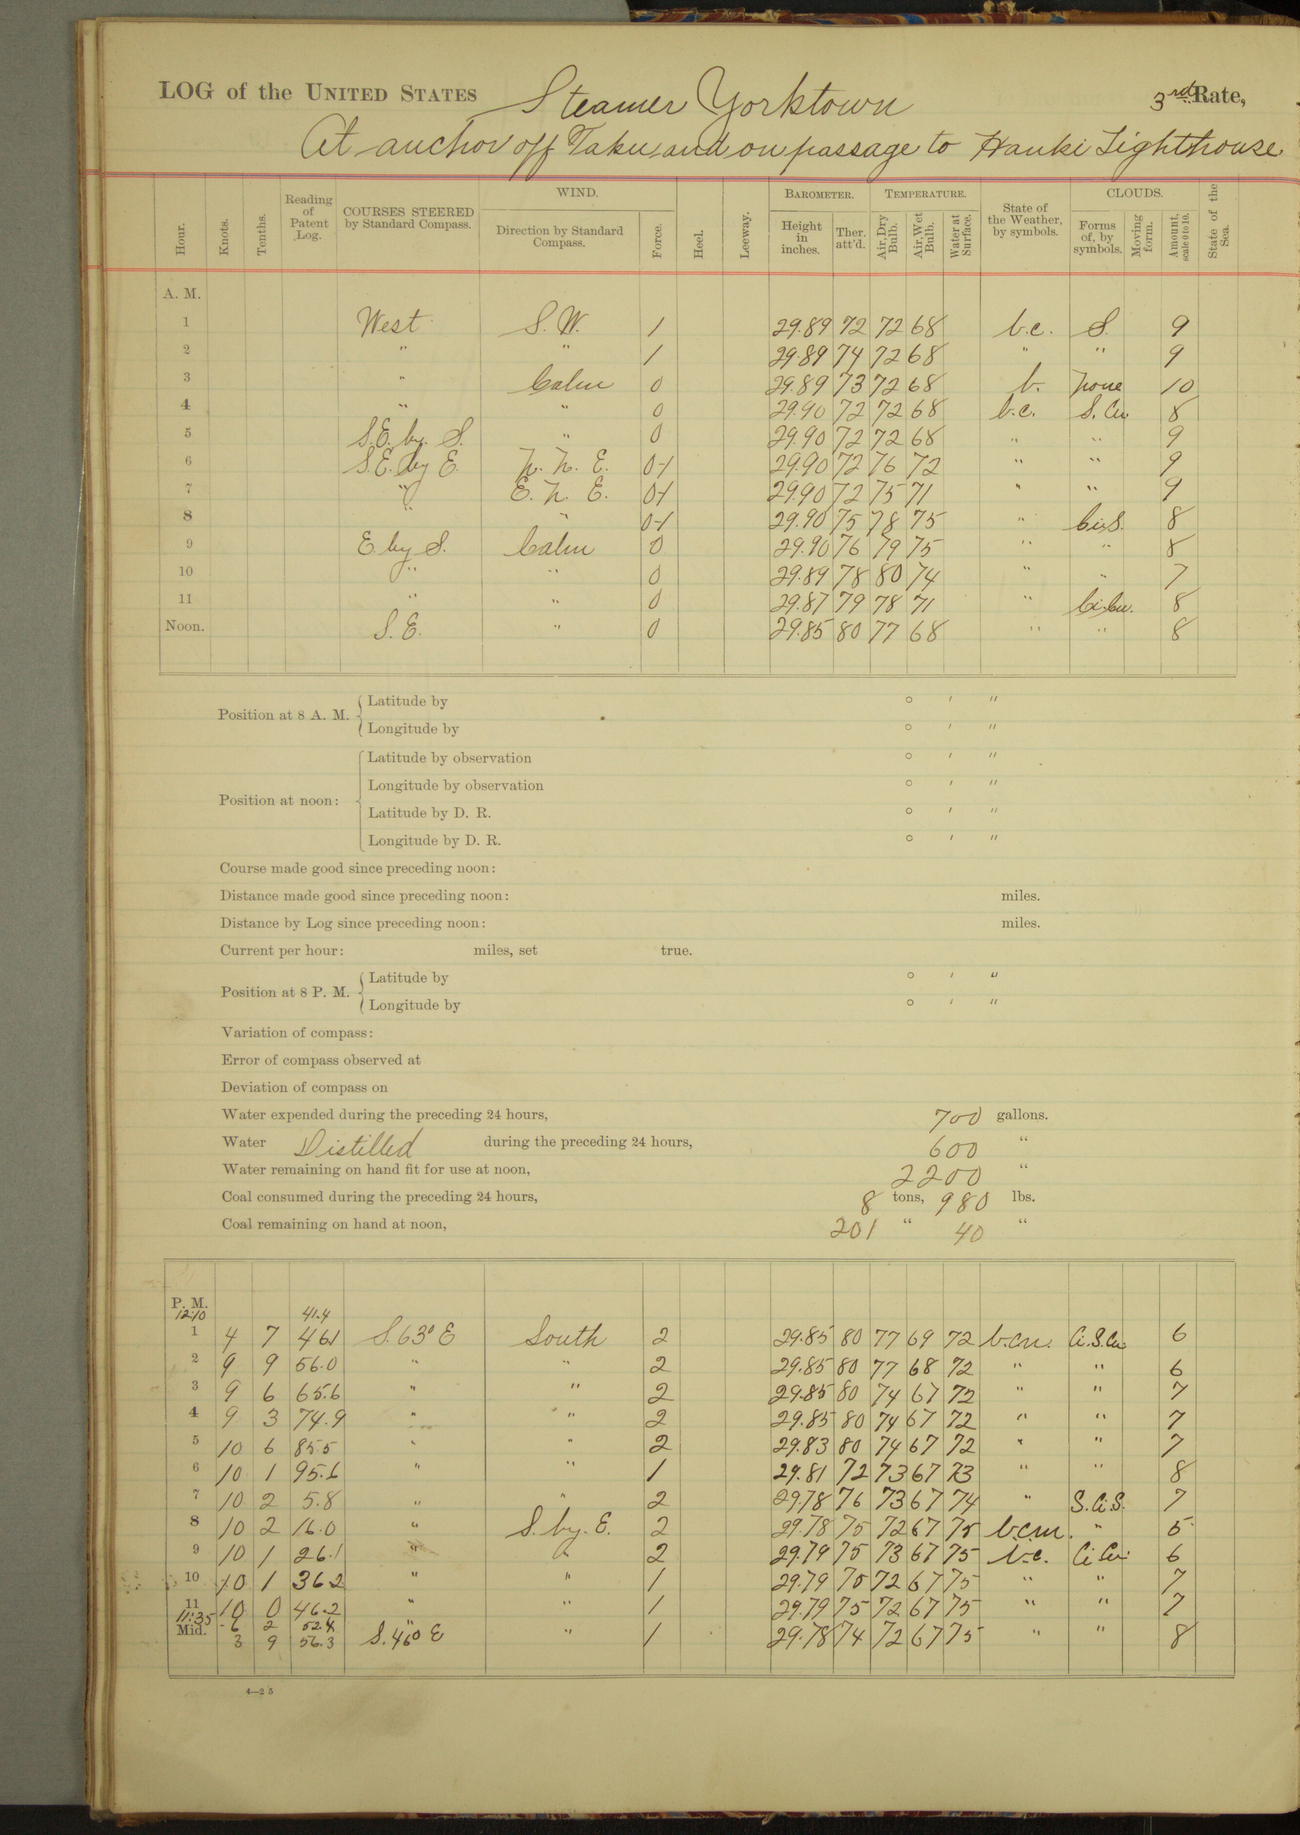 LOG of the UNITED STATES Steamer Yorktown 3rd Rate,
At anchor off Taku, and on passage to Hauki Lighthouse.
Hour. Knots. Tenths. Reading of Patent Log. COURSES STEERED by Standard Compass. WIND. Direction by Standard Compass. Force. Heel. Leeway. BAROMETER. Height in inches. Ther. att'd. TEMPERATURE. Air, Dry Bulb. Air, Wet Bulb. Water at Surface. State of the Weather, by symbols. CLOUDS. Forms of, by symbols. Moving form. Amount, scale 0 to 10. State of the Sea.
A. M.
1 West S. W. 1 29.89 72 72 68 b.c. S. 9
2 " " 1 29.89 74 72 68 " " 9
3 " Calm 0 29.89 73 72 68 b. none 10
4 " " 0 29.90 72 72 68 b.c. S. Cu. 8
5 S.E. by. S. " 0 29.90 72 72 68 " " 9
6 S.E. by E. N. N. E. 0-1 29.90 72 76 72 " " 9
7 " E. N. E. 0-1 29.90 72 75 71 " " 9
8 " " 0-1 29.90 75 78 75 " Ci.S. 8
9 E by S. Calm 0 29.90 76 79 75 " " 8
10 " " 0 29.89 78 80 74 " " 7
11 " " 0 29.87 79 78 71 " Ci.Cu. 8
Noon. S. E. " 0 29.85 80 77 68 " " 8
Position at 8 A. M. Latitude by ° ′ ″
Longitude by ° ′ ″
Position at noon: Latitude by observation ° ′ ″
Longitude by observation ° ′ ″
Latitude by D. R. ° ′ ″
Longitude by D. R. ° ′ ″
Course made good since preceding noon:
Distance made good since preceding noon: miles.
Distance by Log since preceding noon: miles.
Current per hour: miles, set true.
Position at 8 P. M. Latitude by ° ′ ″
Longitude by ° ′ ″
Variation of compass:
Error of compass observed at
Deviation of compass on
Water expended during the preceding 24 hours, 700 gallons.
Water Distilled during the preceding 24 hours, 600 "
Water remaining on hand fit for use at noon, 2200 "
Coal consumed during the preceding 24 hours, 8 tons, 980 lbs.
Coal remaining on hand at noon, 201 " 40 "
P. M.
12:10 41.4
1 4 7 46.1 S. 63° E South 2 29.85 80 77 69 72 b.c.m. Ci.S.Cu. 6
2 9 9 56.0 " " 2 29.85 80 77 68 72 " " 6
3 9 6 65.6 " " 2 29.85 80 74 67 72 " " 7
4 9 3 74.9 " " 2 29.85 80 74 67 72 " " 7
5 10 6 85.5 " " 2 29.83 80 74 67 72 " " 7
6 10 1 95.6 " " 1 29.81 72 73 67 73 " " 8
7 10 2 5.8 " " 2 29.78 76 73 67 74 " S.Ci.S. 7
8 10 2 16.0 " S. by. E. 2 29.78 75 72 67 75 b.c.m. " 5
9 10 1 26.1 " " 2 29.79 75 73 67 75 b.c. Ci Cu. 6
10 10 1 36.2 " " 1 29.79 75 72 67 75 " " 7
11 10 0 46.2 " " 1 29.79 75 72 67 75 " " 7
11:35 6 2 52.4 "
Mid. 3 9 56.3 S. 46° E " 1 29.78 74 72 67 75 " " 8
4—2 5